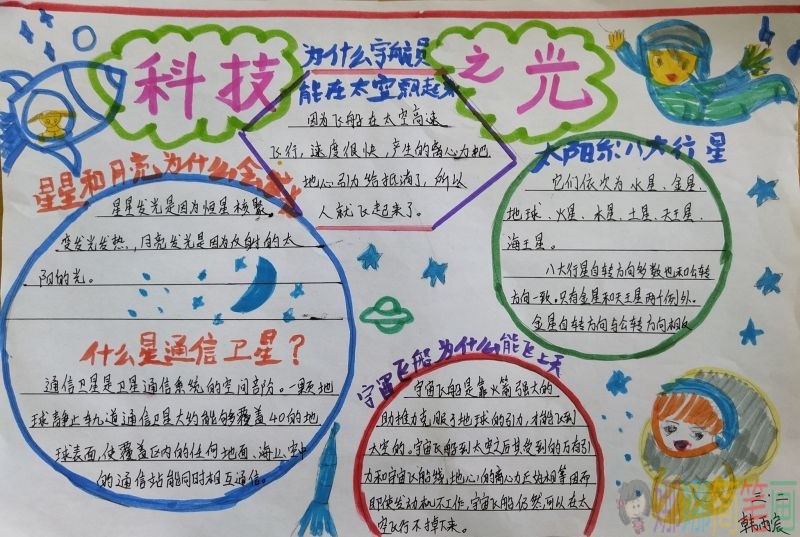 科技之光
为什么宇航员
能在太空飘起来
因为飞船在太空高速
飞行，速度很快，产生的离心力把
地心引力给抵消了，所以
人就飞起来了。
星星和月亮为什么会
星星发光是因为恒星核聚
变发光发热，月亮发光是因为反射的太
阳的光。
什么星通信卫星？
通信卫星是卫星通信系统的空间部份。一颗地
球静止轨道通信卫星大约能够覆盖40的地
球表面，使覆盖区内的任何地面、海上、空中
的通信站能同时相互通信。
太阳系八大行星
它们依次为水星、金星、
地球、火星、木星、土星、天王星、
海王星。
八大行星自转方向多数也和公转
方向一致。只有金星和天王星两个例外。
金星自转方向与公转方向相反
宇宙飞船为什么能飞上天
宇宙飞船是靠火箭强大的
助推力克服了地球的引力，才能飞到
太空的。宇宙飞船到太空后其受到的万有引
力和宇宙飞船绕地心的离心力
相等因而
即使发动机不工作，宇宙飞船仍然可以在太
空飞行不掉下来。
二.二